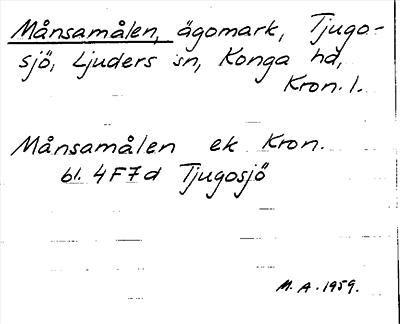 Månsamålen, ägomark, Tjugo-
sjö, Ljuders sn, Konga hd,
Kron. l.
Månsamålen ek Kron.
bl. 4F7d Tjugosjö
M. A. 1959.